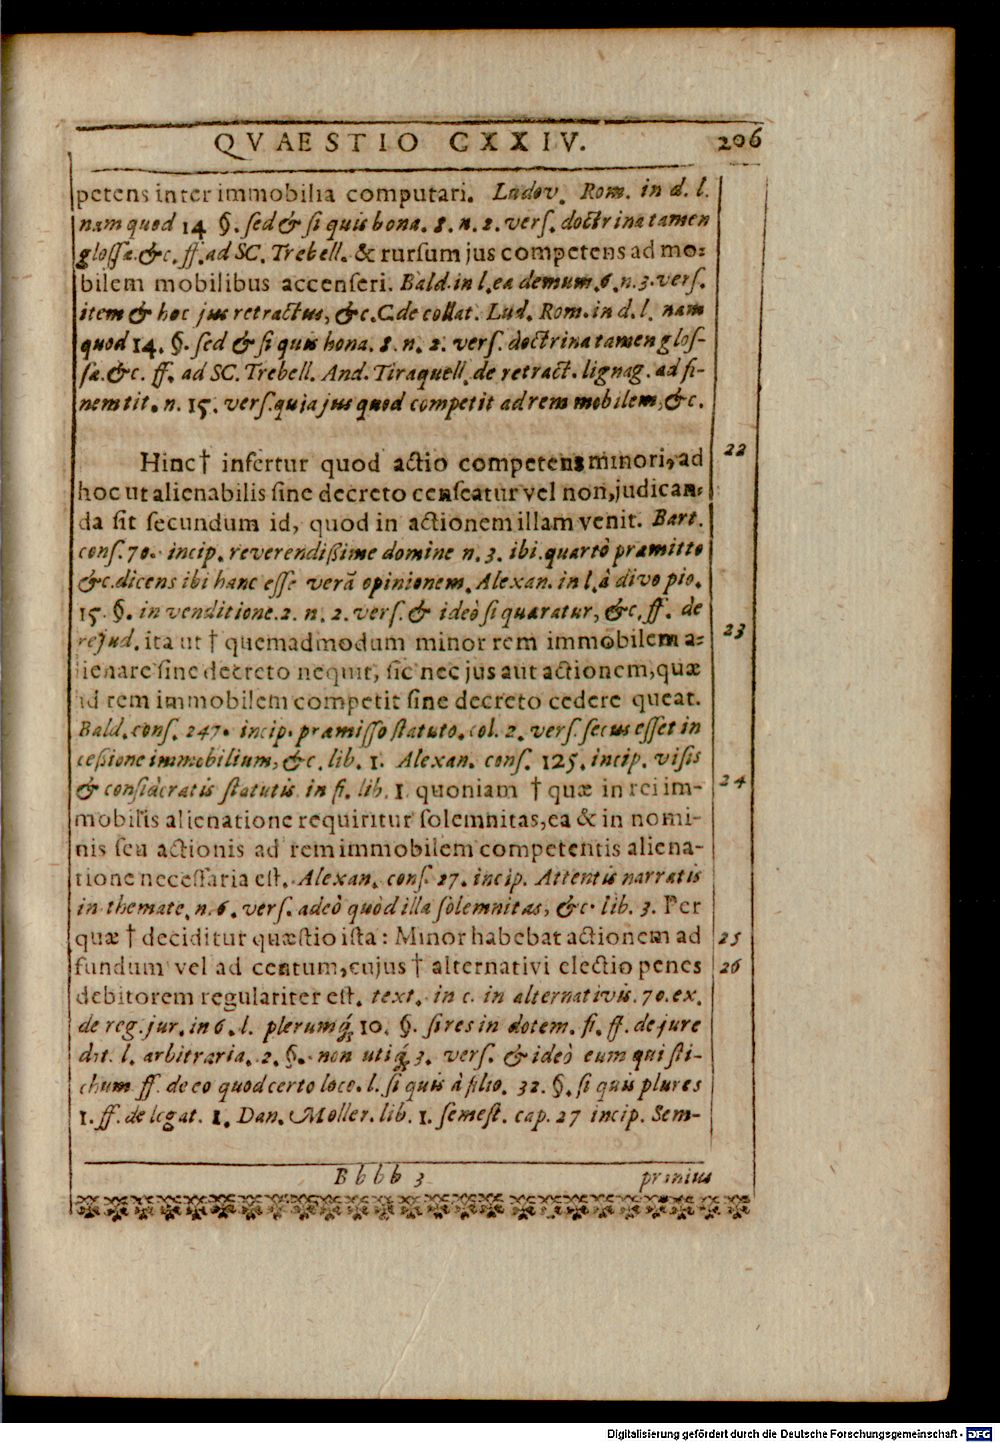 QVAESTIO CXXIV. 206
petens inter immobilia computari. Ludov. Rom. in d. l.
nam quod 14 §. sed & si quis bona. 8. n. 2. vers. doctrina tamen
glossæ. &c. ff. ad SC. Trebell. & rursum jus competens ad mo-
bilem mobilibus accenseri. Bald. in l. ea demum. 6. n. 3. vers.
item & hoc jus retractus, &c. C. de collat. Lud. Rom. in d. l. nam
quod 14. §. sed & si quis bona. 8. n. 2. vers. doctrina tamen glos-
sæ. &c. ff. ad SC. Trebell. And. Tiraquell. de retract. lignag. ad fi-
nem tit. n. 15. vers. quia jus quod competit ad rem mobilem, &c.
Hinc † infertur quod actio competens minori, ad 22
hoc ut alienabilis sine decreto censeatur vel non, judican-
da sit secundum id, quod in actionem illam venit. Bart.
cons. 70. incip. reverendißime domine n. 3. ibi. quartò præmitto
&c. dicens ibi hanc esse verã opinionem. Alexan. in l. à divo pio.
15. §. in venditione. 2. n. 2. vers. & ideò si quæratur, &c. ff. de
re jud. ita ut † quemadmodum minor rem immobilem a- 23
lienare sine decreto nequit, sic nec jus aut actionem, quæ
ad rem immobilem competit sine decreto cedere queat.
Bald. cons. 247. incip. præmisso statuto. col. 2. vers. secus esset in
ceßione immobilium, &c. lib. 1. Alexan. cons. 125. incip. visis
& consideratis statutis. in fi. lib. 1. quoniam † quæ in rei im- 24
mobilis alienatione requiritur solemnitas, ea & in nomi-
nis seu actionis ad rem immobilem competentis aliena-
tione necessaria est. Alexan. cons. 27. incip. Attentis narratis
in themate. n. 6. vers. adeò quòd illa solemnitas, &c. lib. 3. Per
quæ † deciditur quæstio ista: Minor habebat actionem ad 25
fundum vel ad centum, cujus † alternativi electio penes 26
debitorem regulariter est. text. in c. in alternativis. 70. ex.
de reg. jur. in 6. l. plerumq́; 10. §. si res in dotem. fi. ff. de jure
dot. l. arbitraria. 2. §. non utiq́; 3. vers. & ideò eum qui sti-
chum ff. de eo quod certo loco. l. si quis à filio. 32. §. si quis plures
1. ff. de legat. 1. Dan. Moller. lib. 1. semest. cap. 27 incip. Sem-
B b b b 3 pronius
Digitalisierung gefördert durch die Deutsche Forschungsgemeinschaft - DFG